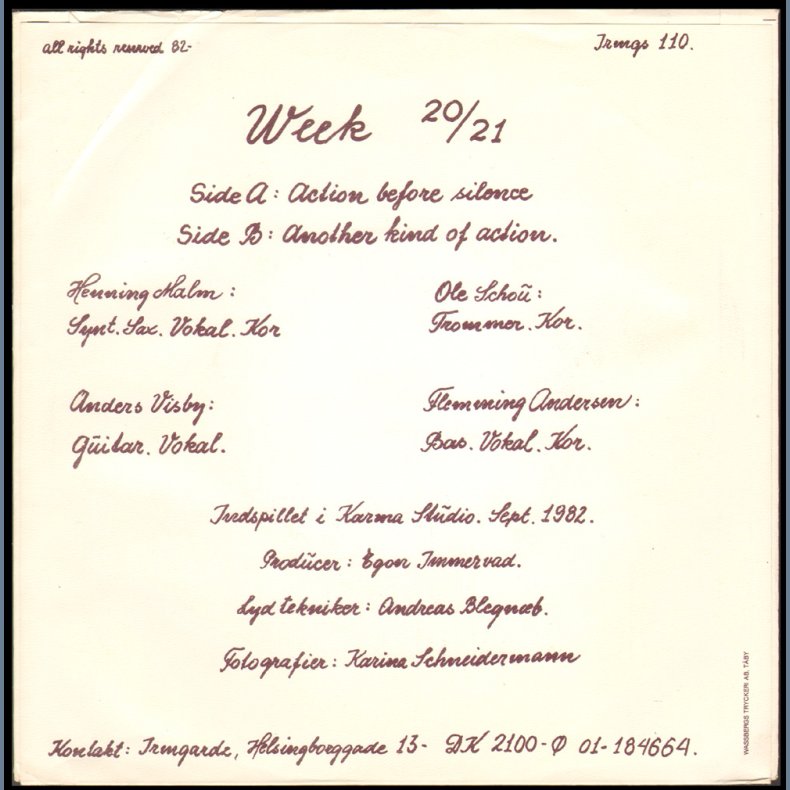 all rights reserved 82-
Irmgs 110.
Week 20/21
Side A: Action before silence
Side B: Another kind of action.
Henning Malm:
Synt. Sax. Vokal. Kor
Ole Schoŭ:
Trommer. Kor.
Anders Visby:
Gŭitar. Vokal.
Flemming Andersen:
Bas. Vokal. Kor.
Indspillet i Karma Stŭdio. Sept. 1982.
Prodŭcer: Egon Immervad.
Lyd tekniker: Andreas Blegnæb.
Fotografier: Karina Schneidermann
Kontakt: Irmgardz, Helsingborggade 13- DK 2100-Ø 01-184664.
WASSBERGS TRYCKERI AB, TÄBY